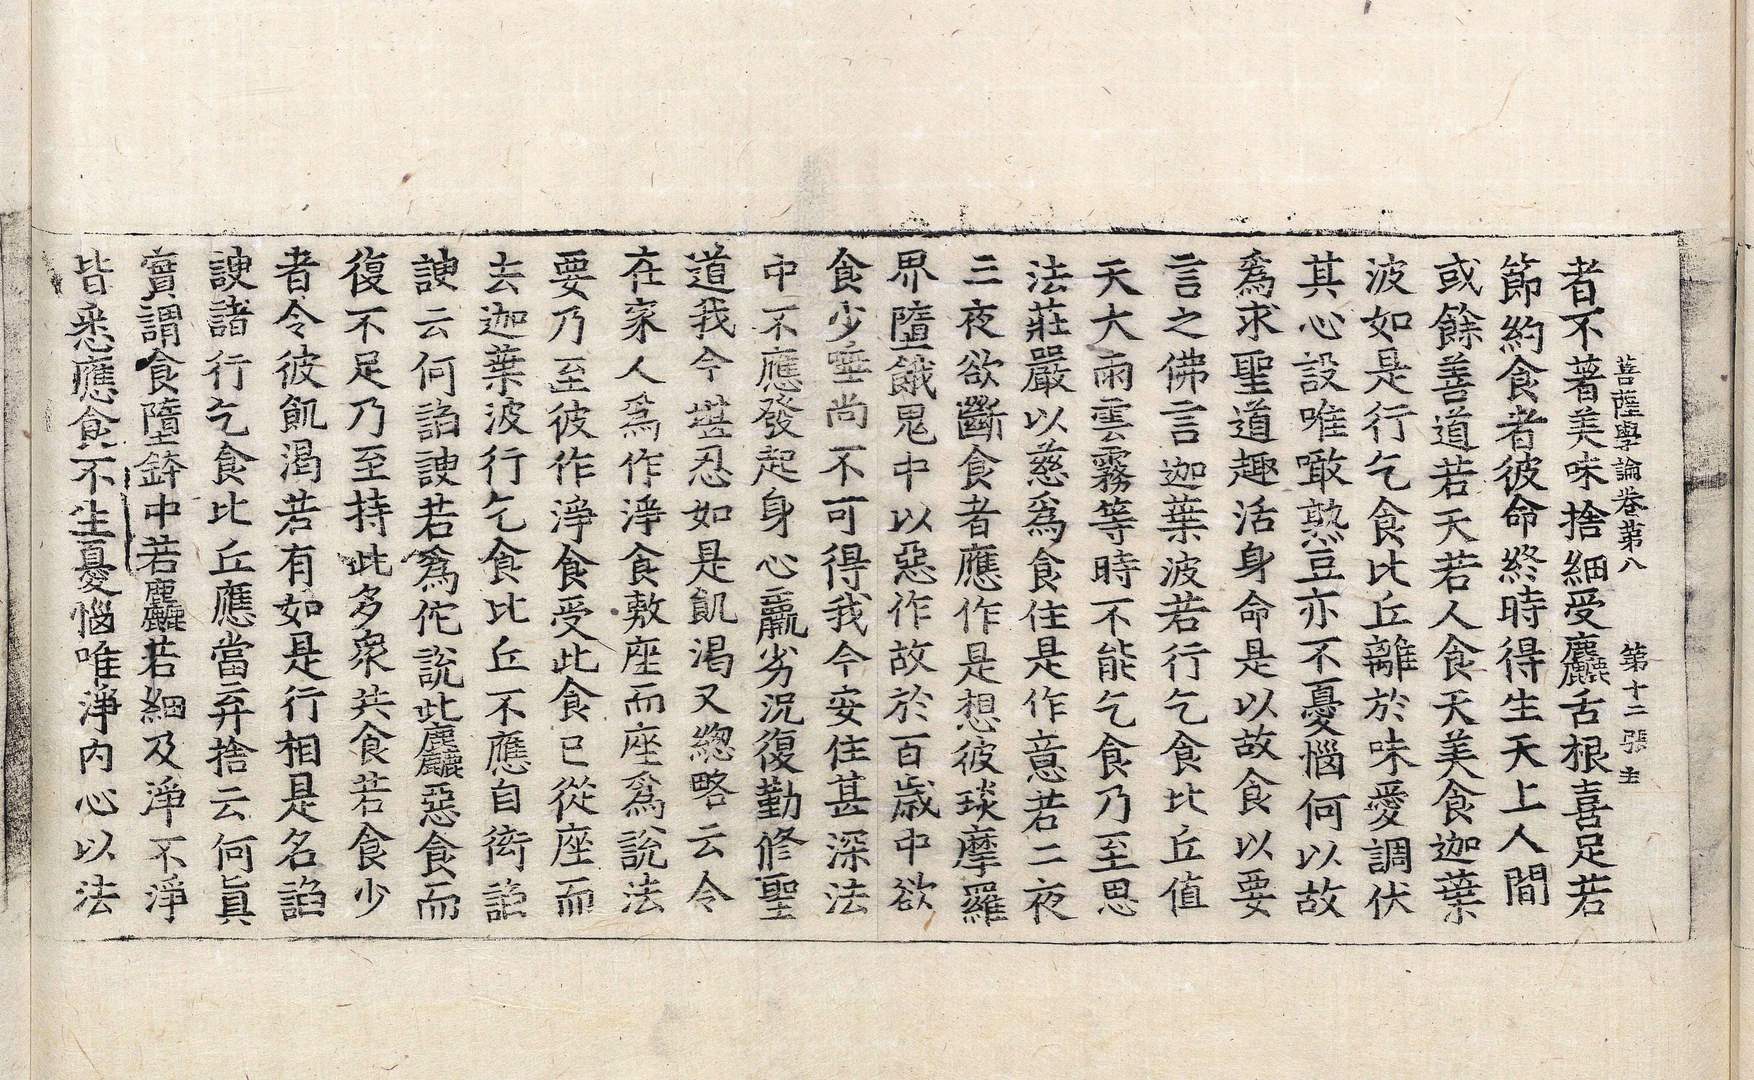 菩薩學論卷苐八　第十二張　主
者不著美味捨細受麤舌根喜足若
節約食者彼命終時得生天上人間
或餘善道若天若人食天美食迦葉
波如是行乞食比丘離於味愛調伏
其心設唯噉熟豆亦不憂惱何以故
爲求聖道趣活身命是以故食以要
言之佛言迦葉波若行乞食比丘值
天大雨雲霧等時不能乞食乃至思
法莊嚴以慈爲食住是作意若二夜
三夜欲斷食者應作是想彼琰摩羅
界墮餓鬼中以惡作故於百歲中欲
食少唾尚不可得我今安住甚深法
中不應發起身心羸劣況復勤修聖
道我今堪忍如是飢渴又緫略云令
在家人爲作淨食敷座而座爲說法
要乃至彼作淨食受此食已從座而
去迦葉波行乞食比丘不應自衒諂
諛云何諂諛若爲佗說此麤惡食而
復不足乃至持此多衆共食若食少
者令彼飢渴若有如是行相是名諂
諛諸行乞食比丘應當弃捨云何真
實謂食墮鉢中若麤若細及淨不淨
皆悉應食不生憂惱唯淨內心以法